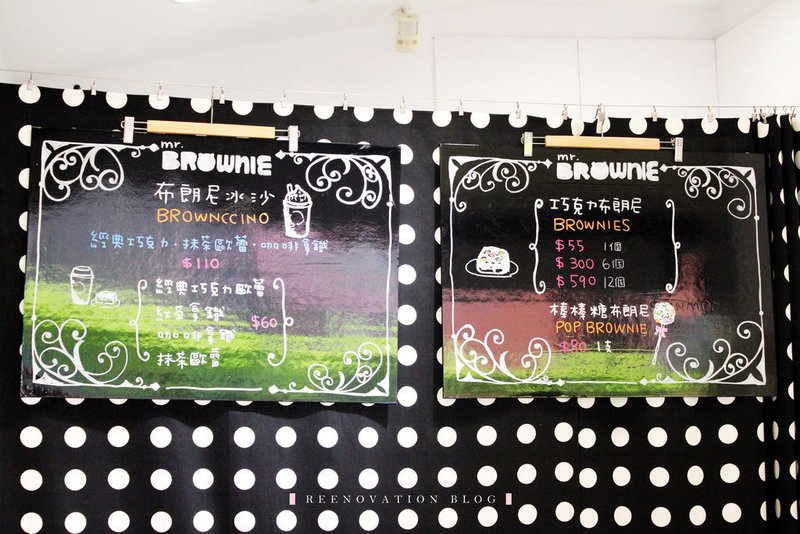 mr.
BROWNIE
布朗尼冰沙
BROWNCCINO
經典巧克力・抹茶歐蕾・咖啡拿鐵
$110
經典巧克力歐蕾
紅茶拿鐵
$60
咖啡拿鐵
抹茶歐蕾
mr.
BROWNIE
巧克力布朗尼
BROWNIES
$55 1個
$300 6個
$590 12個
棒棒糖布朗尼
POP BROWNIE
$80 1支
REENOVATION BLOG